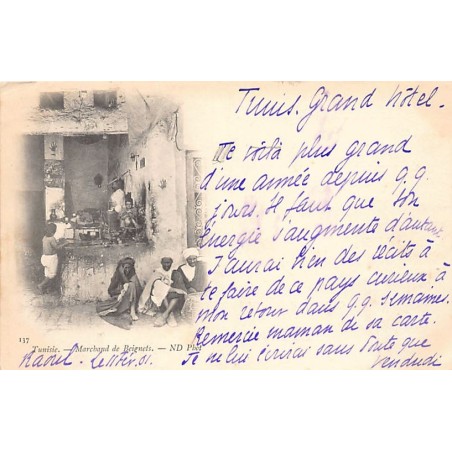 Tunis. Grand hôtel.
Te voilà plus grand
d'une année depuis q.q.
jours. Il faut que ton
énergie s'augmente d'autant.
J'aurai bien des récits à
te faire de ce pays curieux à
mon retour dans q.q. semaines.
Remercie maman de sa carte.
Je ne lui écrirai sans doute que
vendredi
137
Tunisie. — Marchand de Beignets. — ND Phot
Raoul. Le 11 fév. 01.